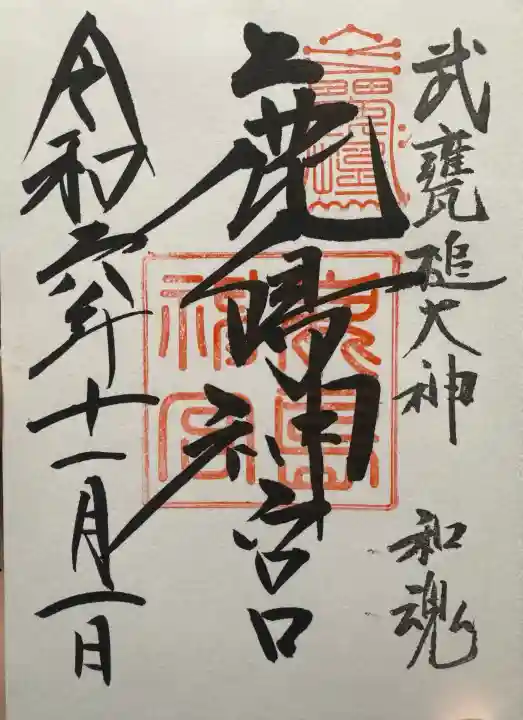 武甕槌大神 和魂
鹿島神宮
令和六年十一月一日
鹿島神宮